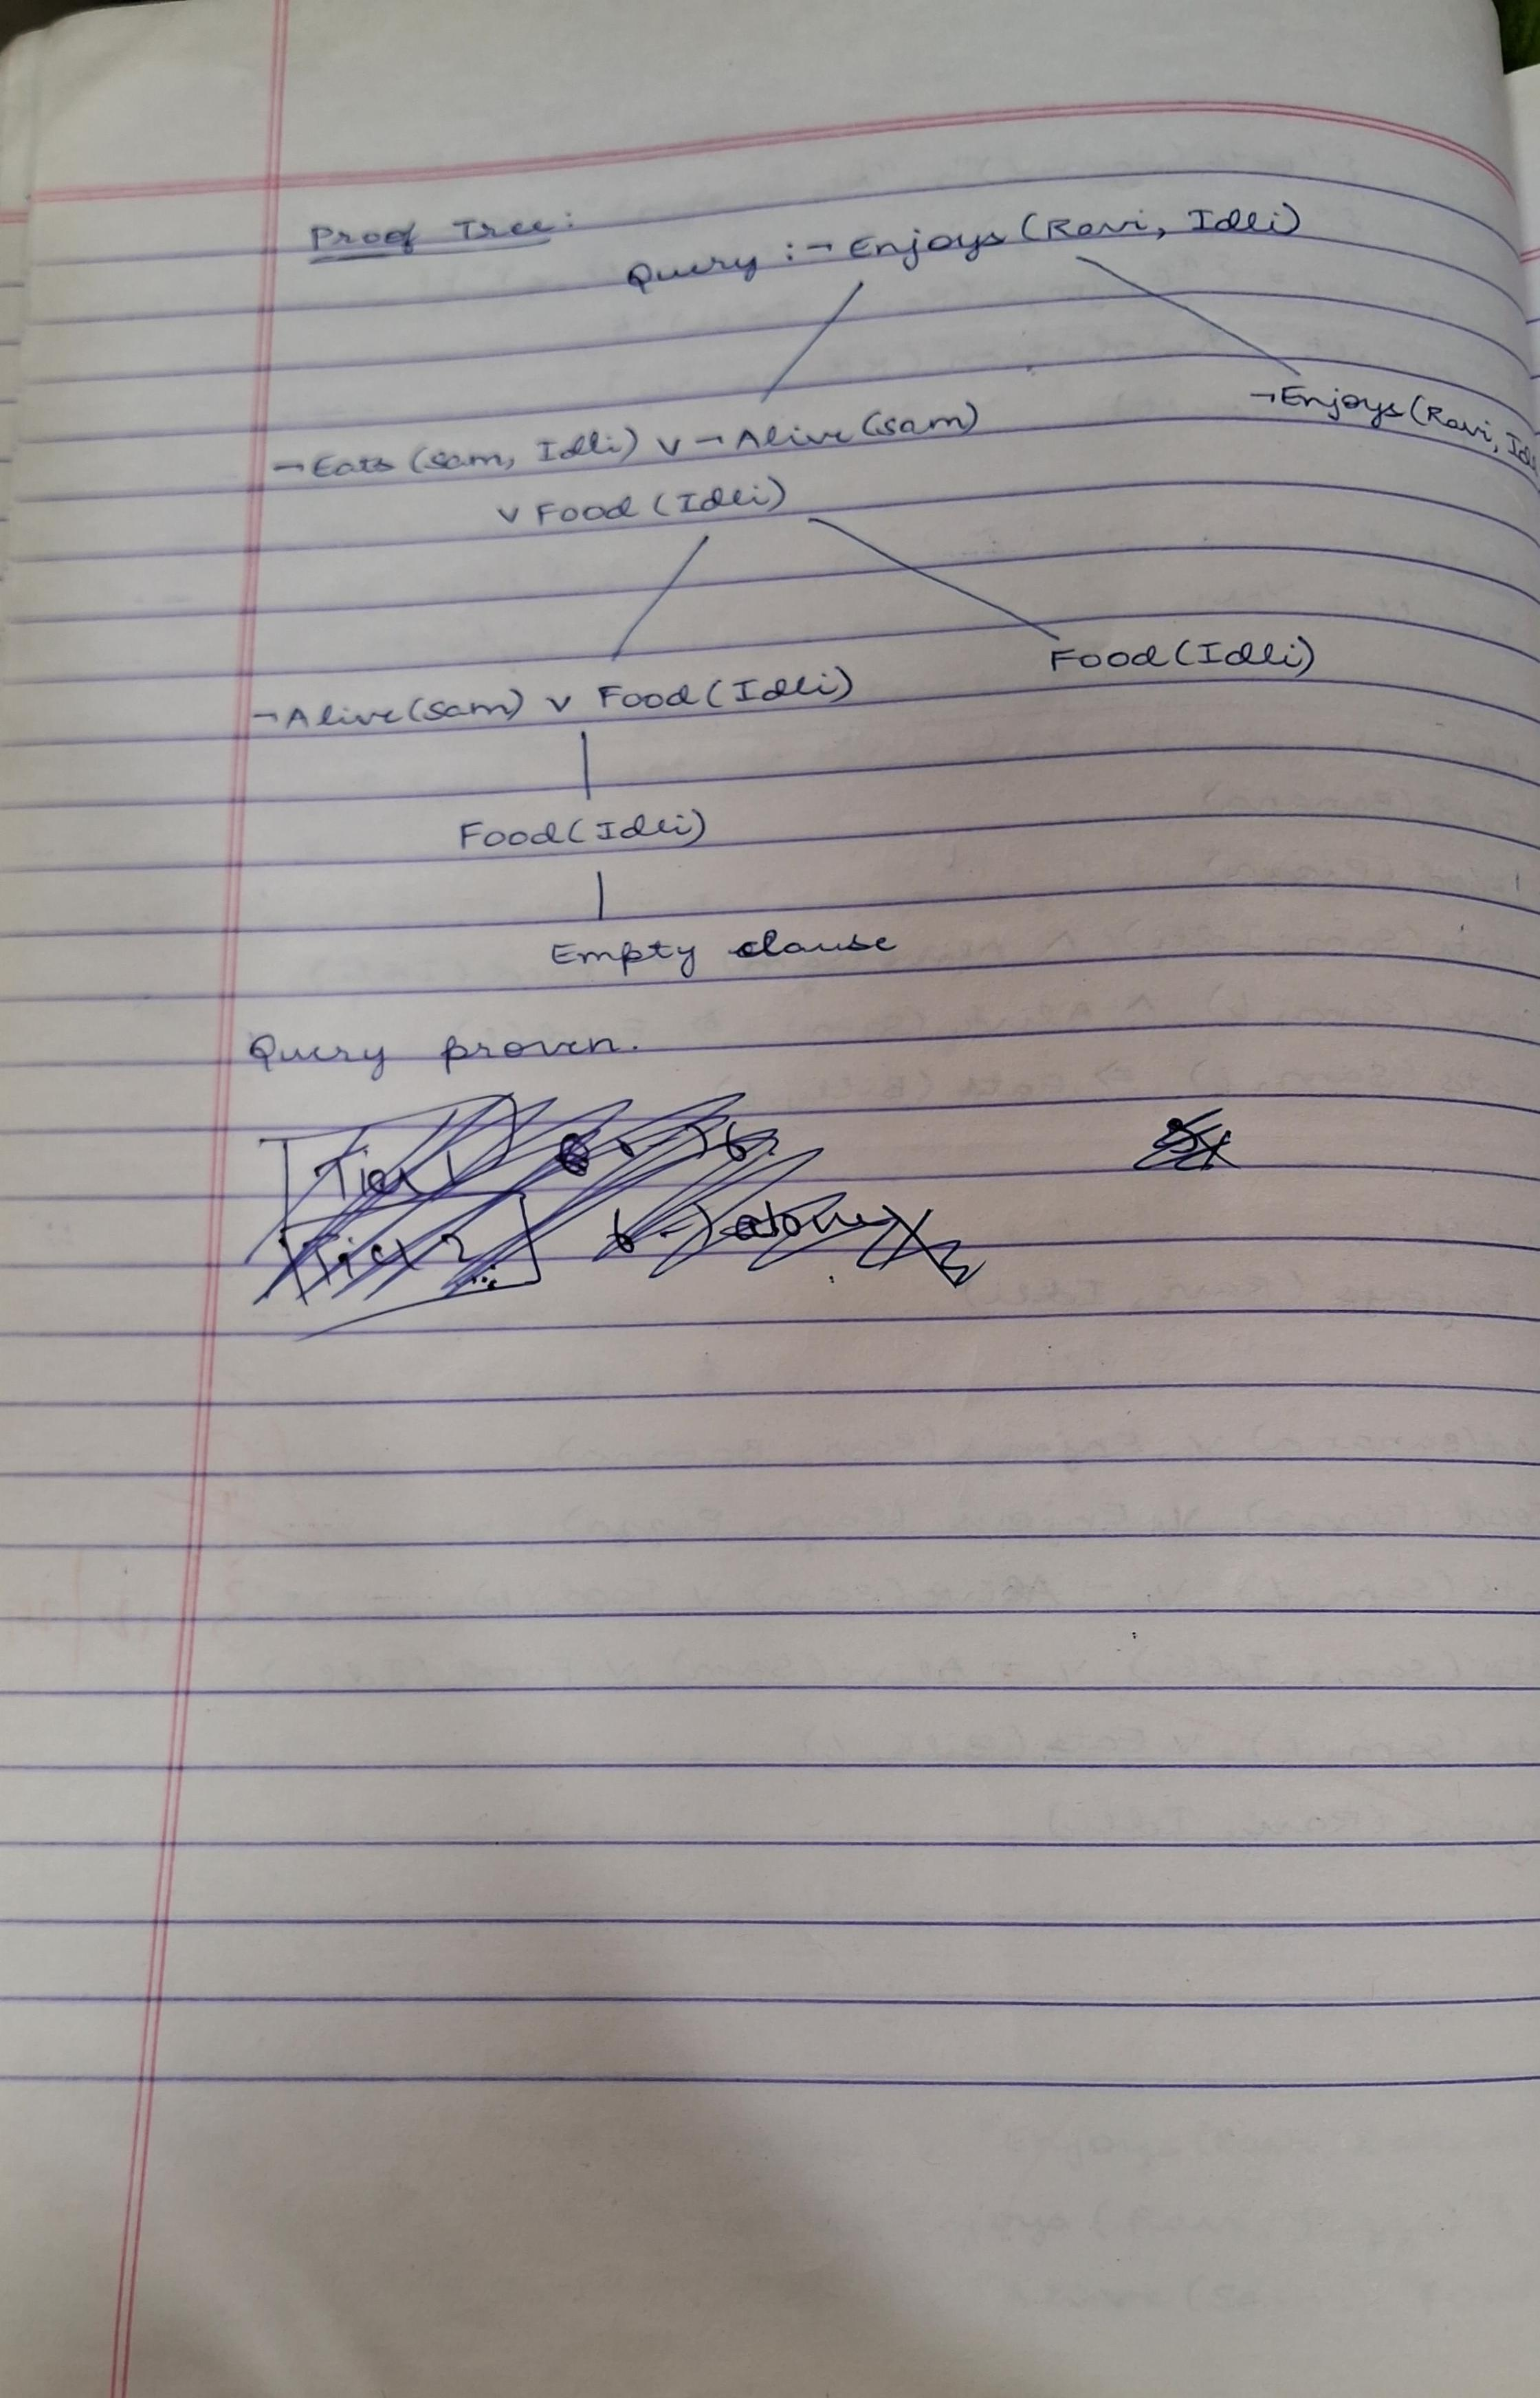 Proof Tree:
Query :¬ Enjoys (Ravi, Idli)
¬Enjoys (Ravi, Idli
¬Eats (sam, Idli) ∨ ¬Alive (sam)
∨ Food (Idli)
Food (Idli)
¬Alive (sam) ∨ Food (Idli)
Food (Idli)
Empty clause
Query proven.
Tier 1
Tier 2